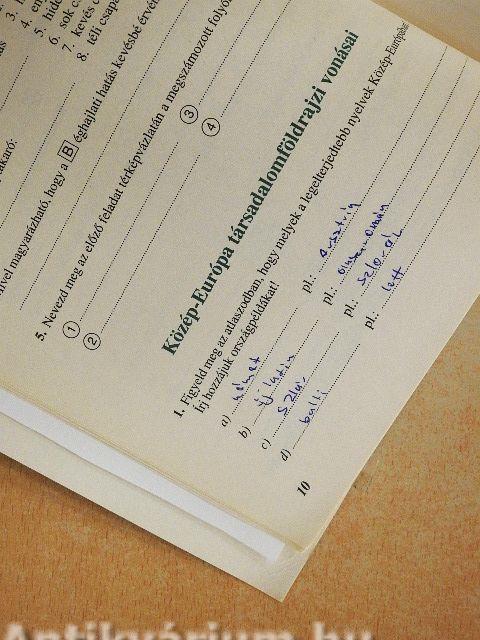 3.
4. en
5. hide
6. sok c
7. kevés c
8. téli csapa
akaró:
ível magyarázható, hogy a B éghajlati hatás kevésbé érvé
5. Nevezd meg az előző feladat térképvázlatán a megszámozott folyó
1 3
2 4
Közép-Európa társadalomföldrajzi vonásai
1. Figyeld meg az atlaszodban, hogy melyek a legelterjedtebb nyelvek Közép-Európába
Írj hozzájuk országpéldákat!
a) német pl.: osztrák
b) újlatin pl.:
c) szláv pl.: szlovák
d) balti pl.: lett
10
Antikvárium.hu